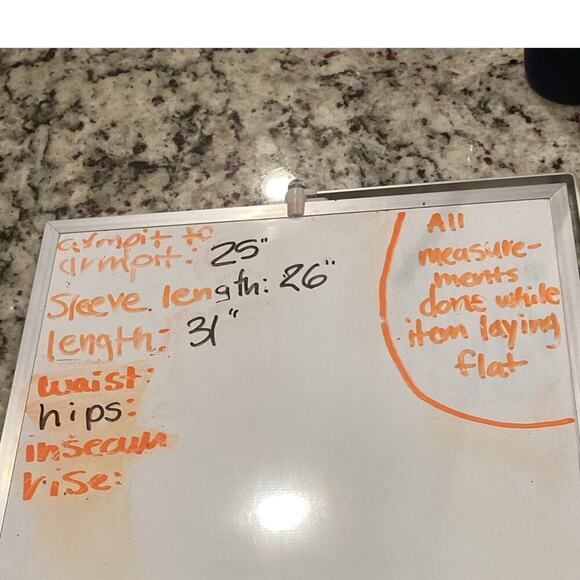 armpit to
armpit: 25"
Sleeve length: 26"
length: 31"
waist:
hips:
inseam
rise:
All
measure-
ments
done while
item laying
flat